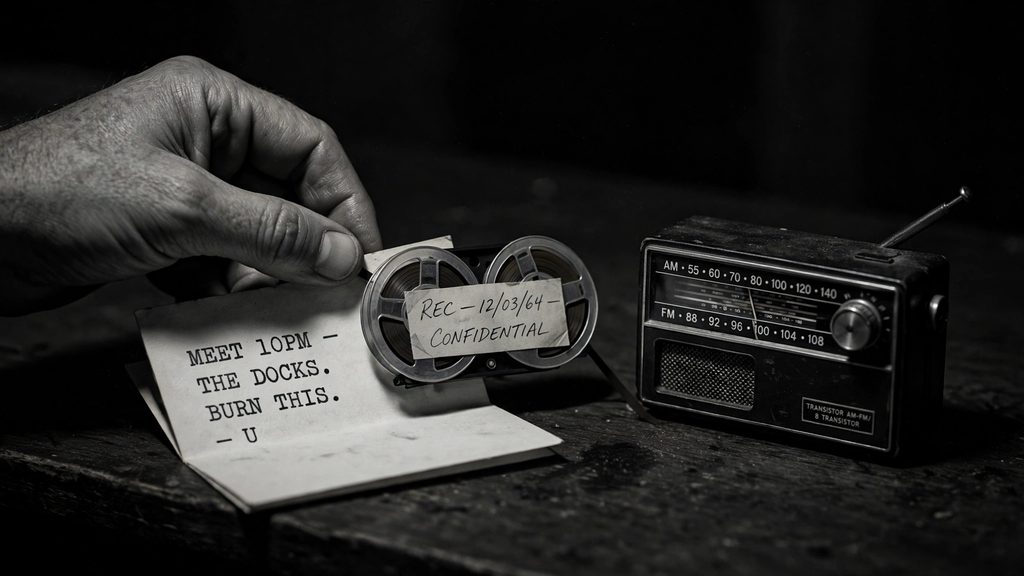 MEET 10PM –
THE DOCKS.
BURN THIS.
– U
REC – 12/03/64 –
CONFIDENTIAL
AM • 55 • 60 • 70 • 80 • 100 • 120 • 140
FM • 88 • 92 • 96 • 100 • 104 • 108
TRANSISTOR AM-FM/
8 TRANSISTOR